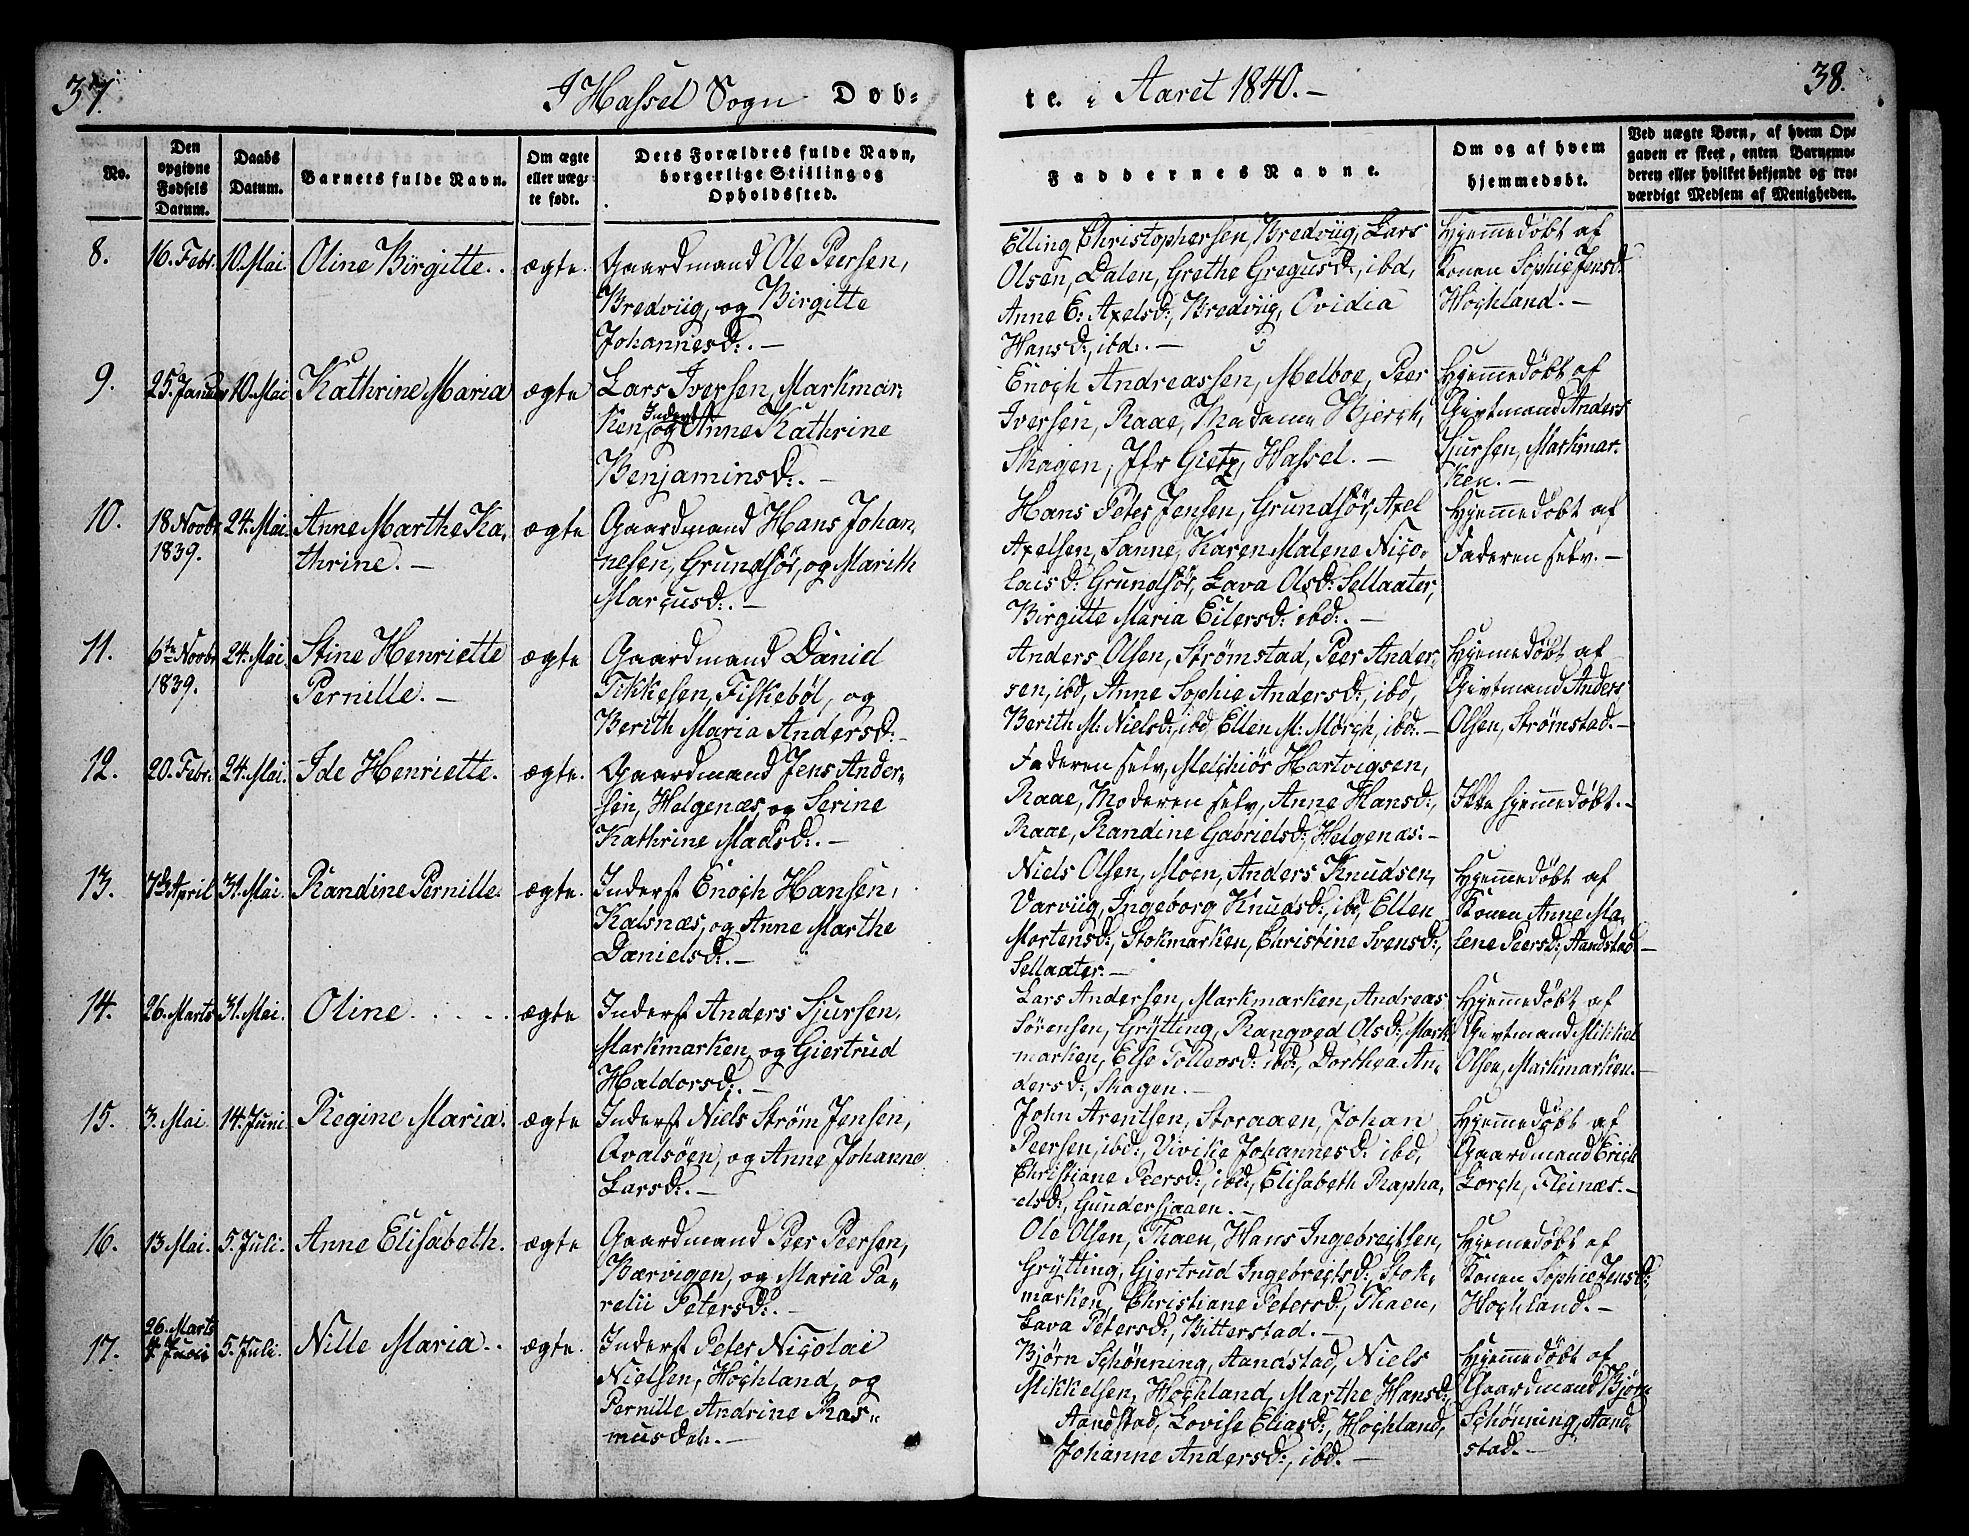 37.
I Hassel Sogn Døb-
te. i Aaret 1840. –
38.
No.
Den opgivne Fødsels Datum.
Daabs Datum.
Barnets fulde Navn.
Om ægte eller uægte født.
Dets Forældres fulde Navn, borgerlige Stilling og Opholdssted.
Faddernes Navne.
Om og af hvem hjemmedøbt.
Ved uægte Børn, af hvem Opgaven er skeet, enten Barnemoderen eller hvilket bekjendt og troværdigt Medlem af Menigheden.
8.
16. Febr.
10. Mai.
Oline Birgitte.
ægte.
Gaardmand Ole Peersen,
Bredviig, og Birgitte
Johannesd:. –
Elling Christophersen, Bredviig, Lars
Olsen, Dalen, Grethe Gregusd:, ibd,
Anne E: Axelsd:, Bredviig, Ovidia
Hansd:, ibd:. –
Hjemmedøbt af
Konen Sophie Jensd:
Høchland. –
9.
25. Januar
10. Mai
Kathrine Maria
ægte
Lars Iversen, Markmar,
Inderst
ken og Anne Kathrine
Benjaminsd:. –
Enoch Andreassen, Melboe, Peer
Iversen, Raae, Madame Hjerch,
Skagen, Jfr Gietz, Hassel. –
Hjemmedøbt af
Givtmand Anders
Sjursen, Markmar-
ken. –
10.
18 Novbr
1839.
24. Mai.
Anne Marthe Ka,
thrine. –
ægte
Gaardmand Hans Johan,
nesen, Grundför, og Marith
Marcusd:. –
Hans Peter Jensen, Grundför, Axel
Axelsen, Sanne, Karen Malene Nico,
laisd: Grundför, Lava Olsd: Sellaater,
Birgitte Maria Eilersd: ibd:. –
Hjemmedøbt af
Faderen selv. –
11.
6te Novbr
1839.
24. Mai
Stine Henriette
Pernille. –
ægte
Gaardmand Daniel
Tikkesen, Fiskebøl, og
Berith Maria Andersd: –
Anders Olsen, Strømstad, Peer Ander,
sen, ibd, Anne Sophie Andersd:, ibd,
Berith M: Nielsd:, ibd, Ellen M: Mørch, ibd:. –
Hjemmedøbt af
Givtmand Anders
Olsen, Strømstad. –
12.
20. Febr.
24. Mai.
Ide Henriette.
ægte.
Gaardmand Jens Ander,
sen, Helgenæs, og Serine
Kathrine Madsd:. –
Faderen selv, Melchiör Hartvigsen,
Raae, Moderen selv, Anne Hansd:,
Raae, Randine Gabrielsd:, Helgenæs. –
Ikke hjemmedøbt. –
13.
7de April
31. Mai.
Randine Pernille.
ægte.
Inderst Enoch Hansen,
Kalsnæs, og Anne Marthe
Danielsd:. –
Niels Olsen, Moen, Anders Knudsen,
Varviig, Ingeborg Knudsd:, ibd, Ellen
Mortensd:, Stokmarken, Christine Svensd:,
Sellaater. –
Hjemmedøbt af
Konen Anne Ma,
lene Peersd:, Aandstad –
14.
26. Marts
31. Mai.
Oline. . . .
ægte
Inderst Anders Sjursen,
Markmarken, og Giertrud
Haldorsd:. –
Lars Andersen, Markmarken, Andreas
Sörensen, Grytting, Rangved Olsd:, Mark
marken, Else Tollevsd: ibd:, Dorthea An,
dersd:, Skagen. –
Hjemmedøbt af
Givtmand Mikkel
Olsen, Markmarken. –
15.
3. Mai
14. Juni
Regine Maria.
ægte
Inderst Niels Strøm Jensen,
Qvalsöen, og Anne Johanne
Larsd:. –
John Arentsen, Storaaen, Johan
Peersen, ibd:, Vivike Johannesd: ibd,
Christiane Peersd:, ibd:, Elisabeth Rapha,
elsd:, Gundersjaaen. –
Hjemmedøbt af
Gaardmand Erich
Lorch, Fleinæs. –
16.
13. Mai.
5. Juli.
Anne Elisabeth.
ægte
Gaardmand Peer Peersen,
Bærvigen, og Maria Pa,
relii Petersd:. –
Ole Olsen, Thaen, Hans Ingebreitsen,
Grytting, Gjertrud Ingebreitsd:, Stok,
marken, Christiane Petersd:, Thaen,
Lava Petersd:, Bitterstad. –
Hjemmedøbt af
Konen Sophie Jensd:,
Hochland. –
17.
26. Marts
5. Juli.
Nille Maria.
ægte.
Inderst Peter Nicolai
Nielsen, Høchland, og
Pernille Andrine Ras,,
musdat:. –
Bjørn Schönning, Aandstad, Niels
Mikkelsen, Høchland, Marthe Hansd:,
Aandstad, Lovise Eliasd:, Høchland,
Johanne Andersd:, ibd. –
Hjemmedøbt af
Gaardmand Bjørn
Schönning, Aand,
stad. –